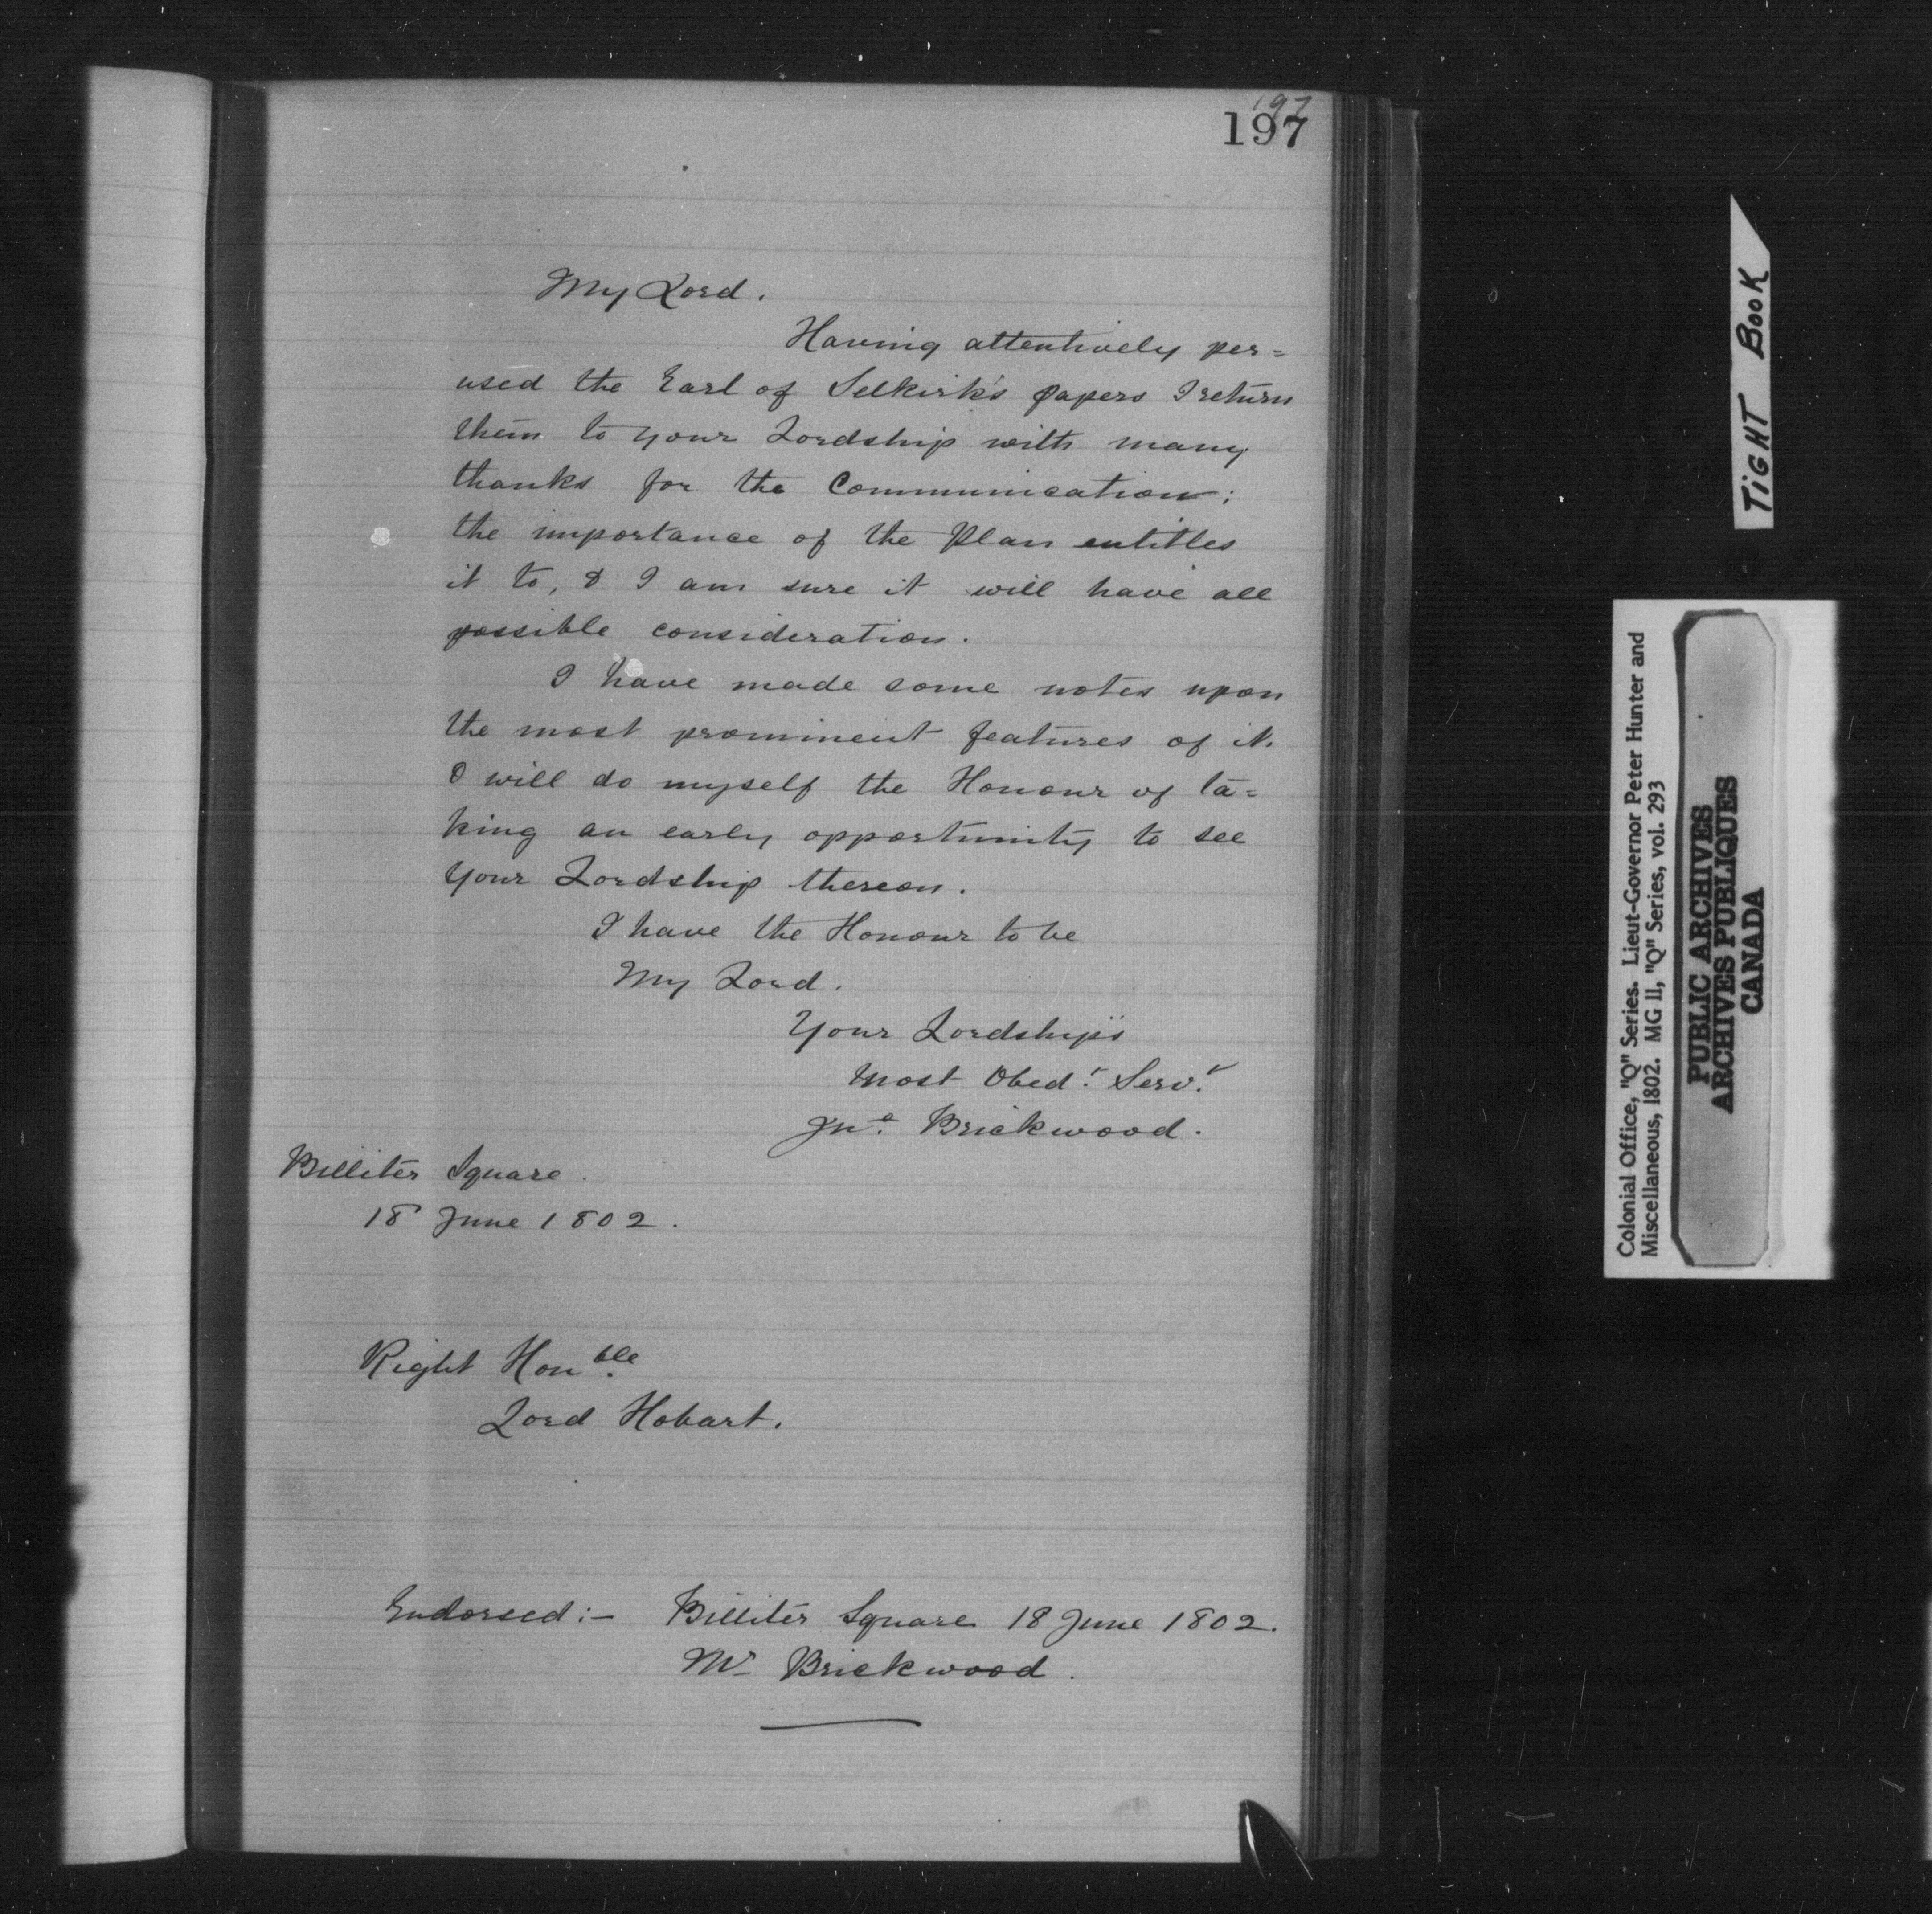 197
197
My Lord.
Having attentively per=
used the Earl of Selkirk's papers I return
them to your Lordship with many
thanks for the Communication;
the importance of the Plan entitles
it to, & I am sure it will have all
possible consideration.
I have made some notes upon
the most prominent features of it.
& will do myself the Honour of ta=
king an early opportunity to see
your Lordship thereon.
I have the Honour to be
My Lord.
Your Lordship's
Most Obed.t Serv.t
Jn.o Brickwood.
Billiter Square.
18 June 1802.
Right Hon.ble
Lord Hobart.
Endorsed:- Billiter Square 18 June 1802.
Mr Brickwood.
TIGHT BOOK
Colonial Office, "Q" Series. Lieut-Governor Peter Hunter and
Miscellaneous, 1802. MG 11, "Q" Series, vol. 293
PUBLIC ARCHIVES
ARCHIVES PUBLIQUES
CANADA